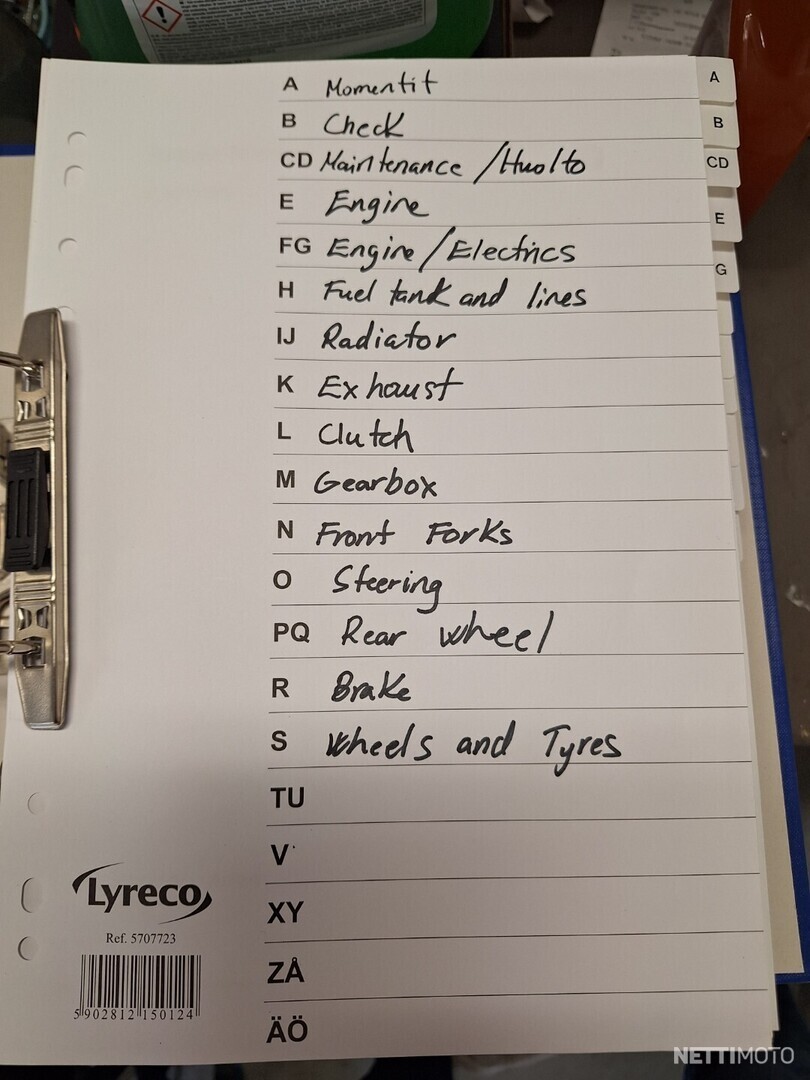 A Momentit
B Check
CD Maintenance / Huolto
E Engine
FG Engine / Electrics
H Fuel tank and lines
IJ Radiator
K Exhaust
L Clutch
M Gearbox
N Front Forks
O Steering
PQ Rear wheel
R Brake
S Wheels and Tyres
TU
V
XY
ZÅ
ÄÖ
A
B
CD
E
G
Lyreco
Ref. 5707723
5 902812 150124
NETTIMOTO